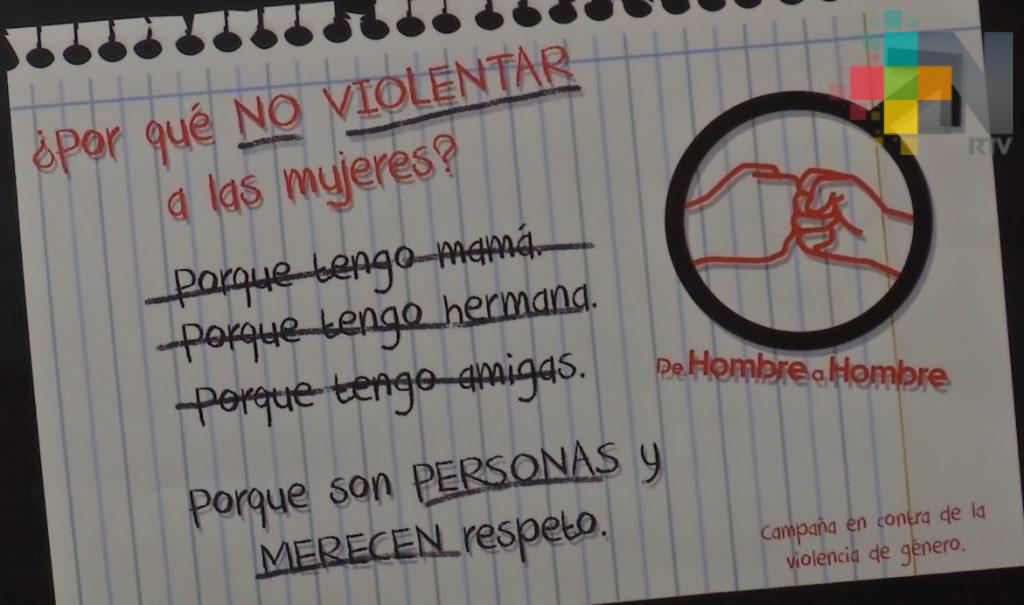 ¿Por qué NO VIOLENTAR
a las mujeres?
Porque tengo mamá.
Porque tengo hermana.
Porque tengo amigas.
Porque son PERSONAS y
MERECEN respeto.
RTV
De Hombre a Hombre
Campaña en contra de la
violencia de género.